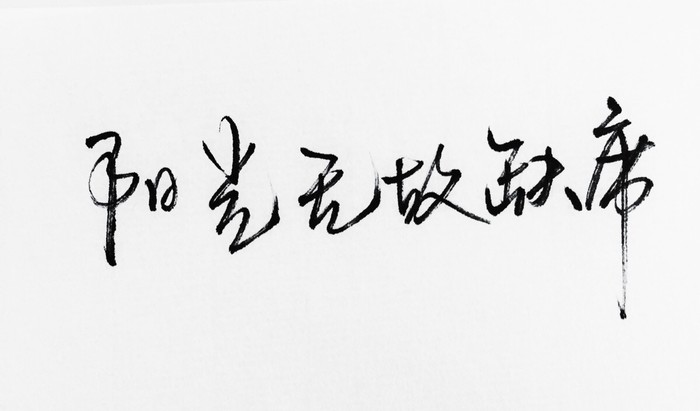 阳光无故缺席